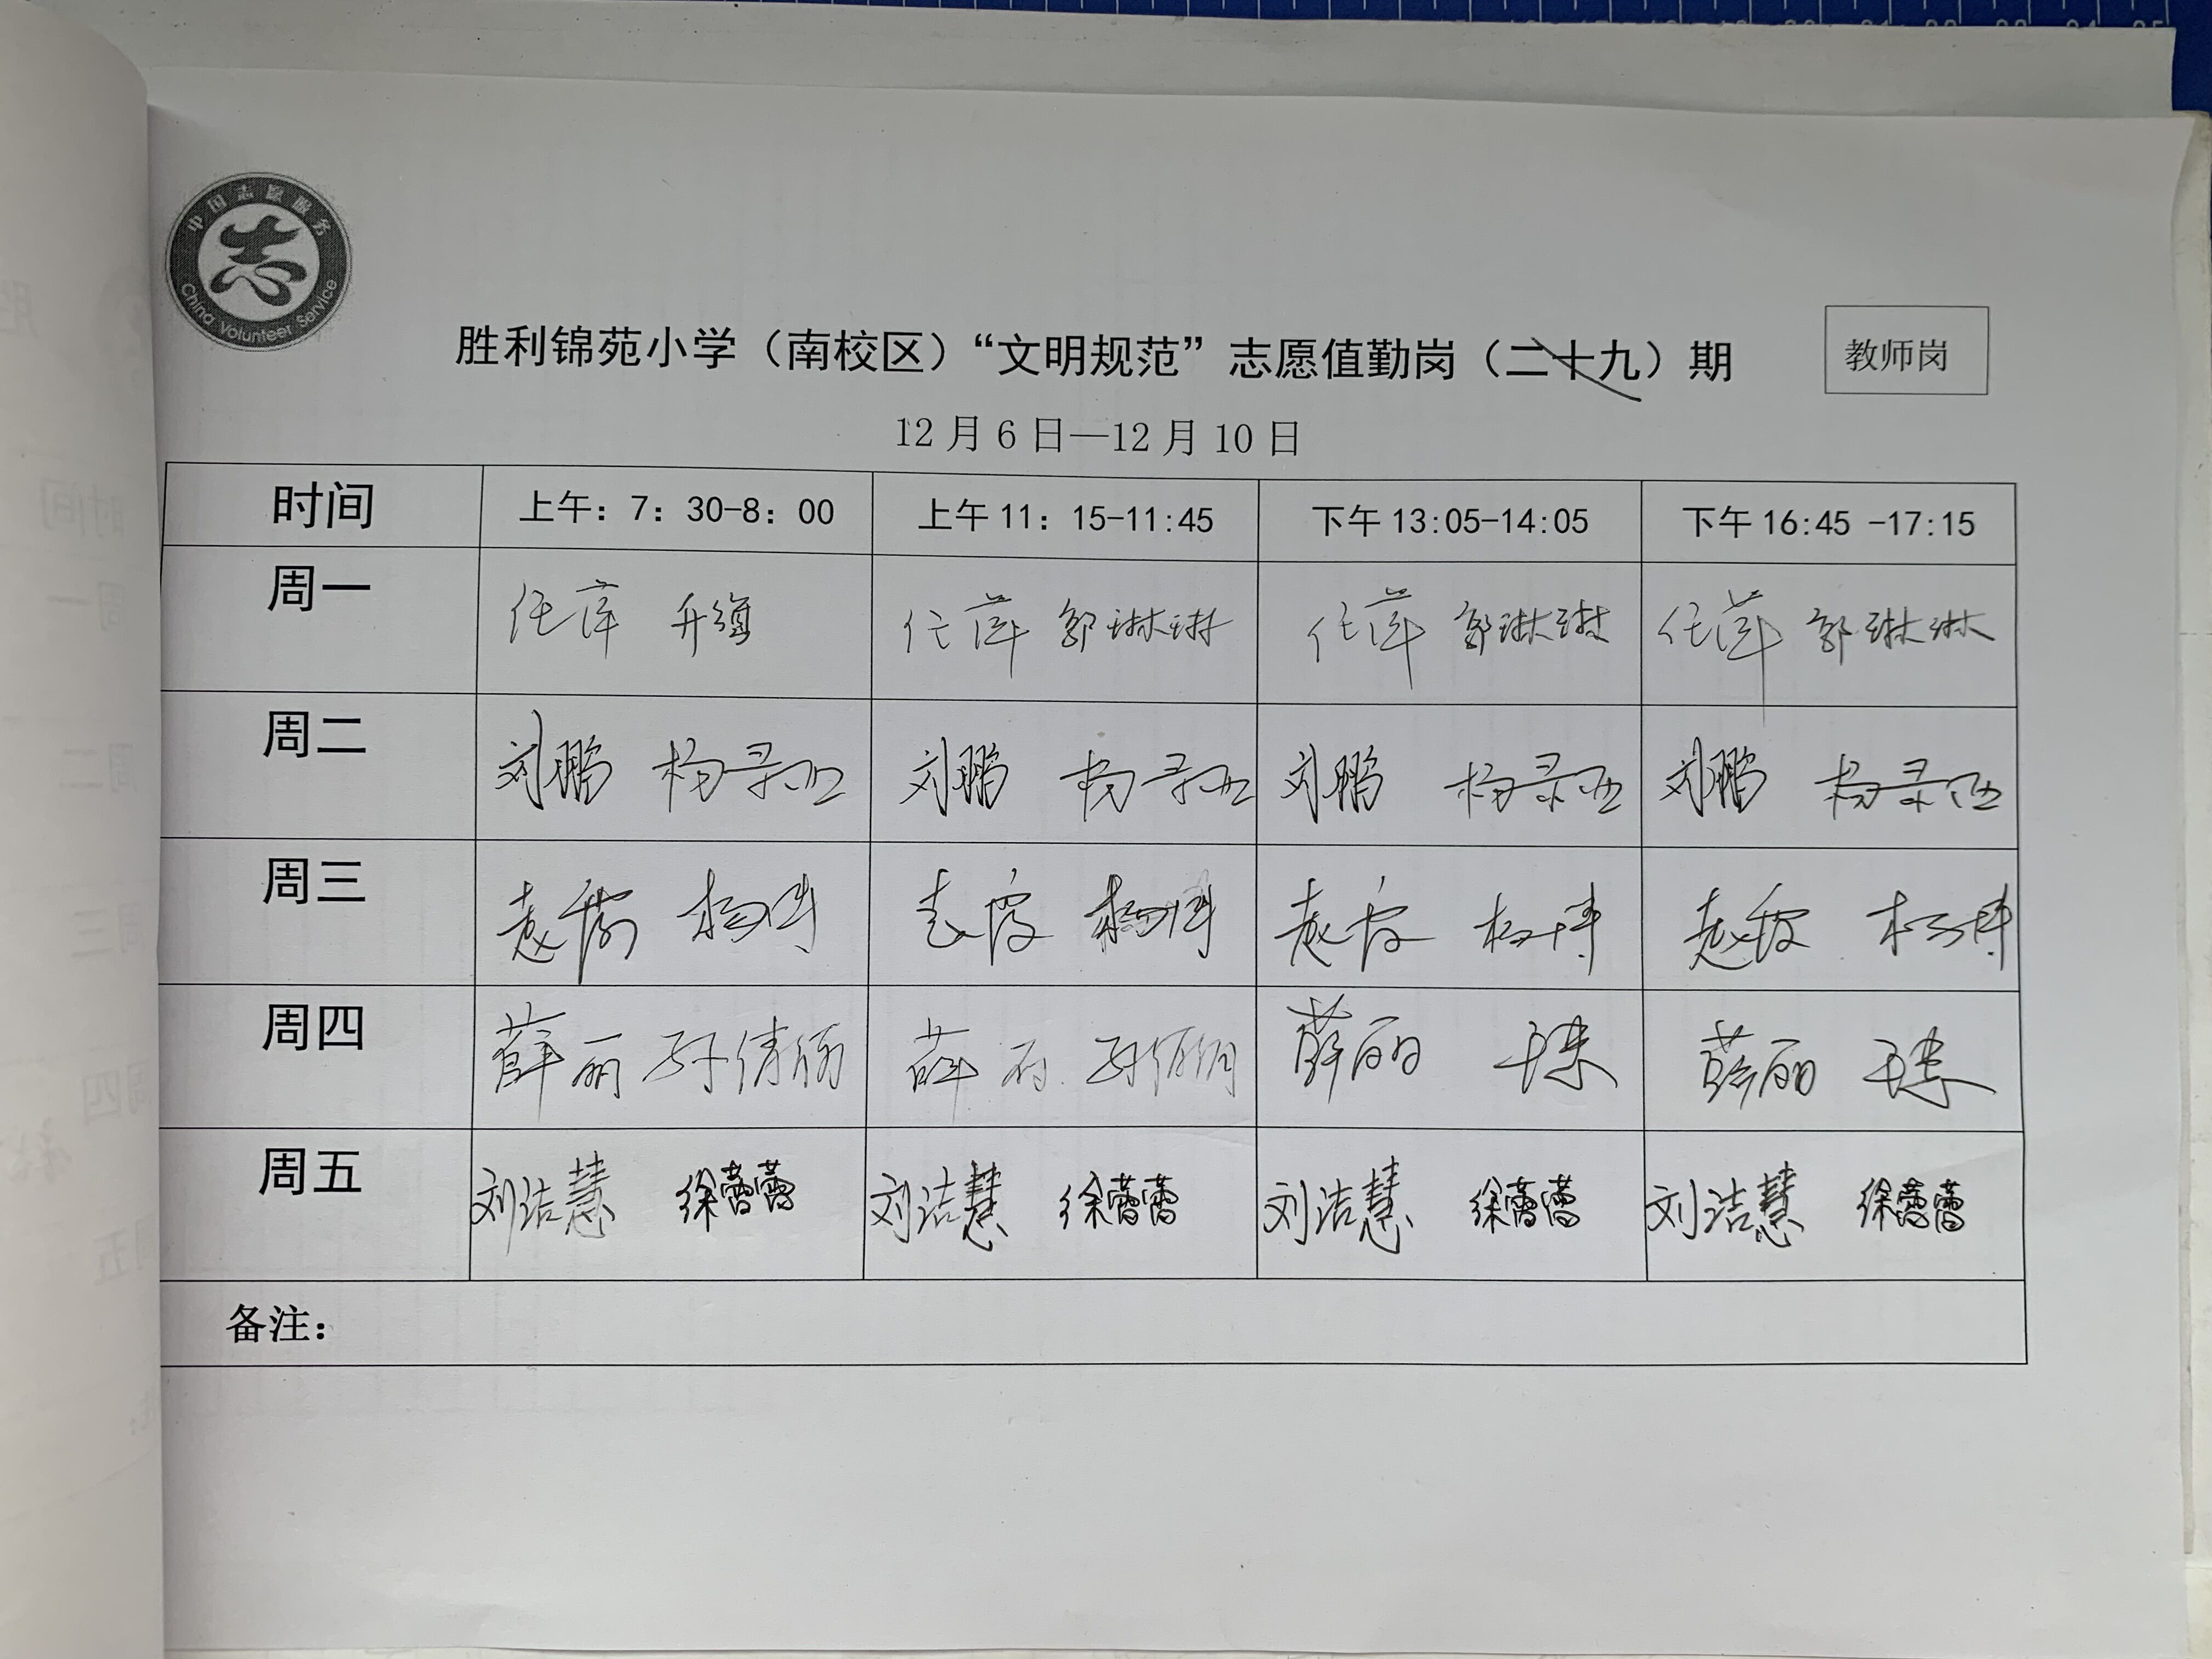 中国志愿服务
志
China Volunteer Service
胜利锦苑小学（南校区）“文明规范”志愿值勤岗（二十九）期
教师岗
12月6日—12月10日
时间 上午：7：30-8：00 上午11：15-11:45 下午13:05-14:05 下午16:45 -17:15
周一 任萍 任萍 郭琳琳 任萍 郭琳琳 任萍 郭琳琳
周二 刘鹏 杨录亚 刘鹏 杨录亚 刘鹏 杨录亚 刘鹏 杨录亚
周三 袁 杨博 袁 杨博 袁 杨博 袁 杨博
周四 薛丽 孙倩倩 薛丽 孙倩倩 薛丽 薛丽
周五 刘洁慧 徐蕾蕾 刘洁慧 徐蕾蕾 刘洁慧 徐蕾蕾 刘洁慧 徐蕾蕾
备注：